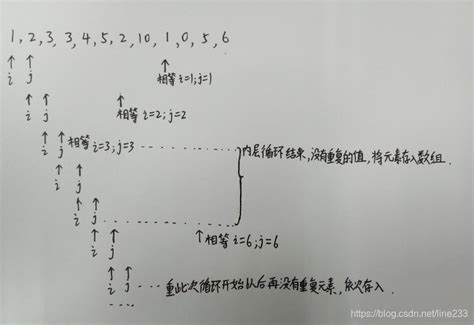 1, 2, 3, 3, 4, 5, 2, 10, 1, 0, 5, 6
i j 相等 i=1; j=1
i j 相等 i=2; j=2
i j 相等 i=3; j=3 内层循环结束,没有重复的值,将元素存入数组.
i j
i j
i j 相等 i=6; j=6
i j 重此次循环开始以后再没有重复元素,依次存入.
https://blog.csdn.net/line233